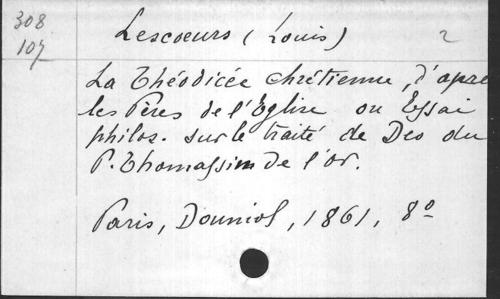 308
107
Lescoeurs (Louis) 2
La Théodicée chrétienne, d'apre
les Pères de l'Eglise ou Essai
philos. sur le traité de Deo du
P. Thomassin de l'Or.
Paris, Douniol, 1861, 8º